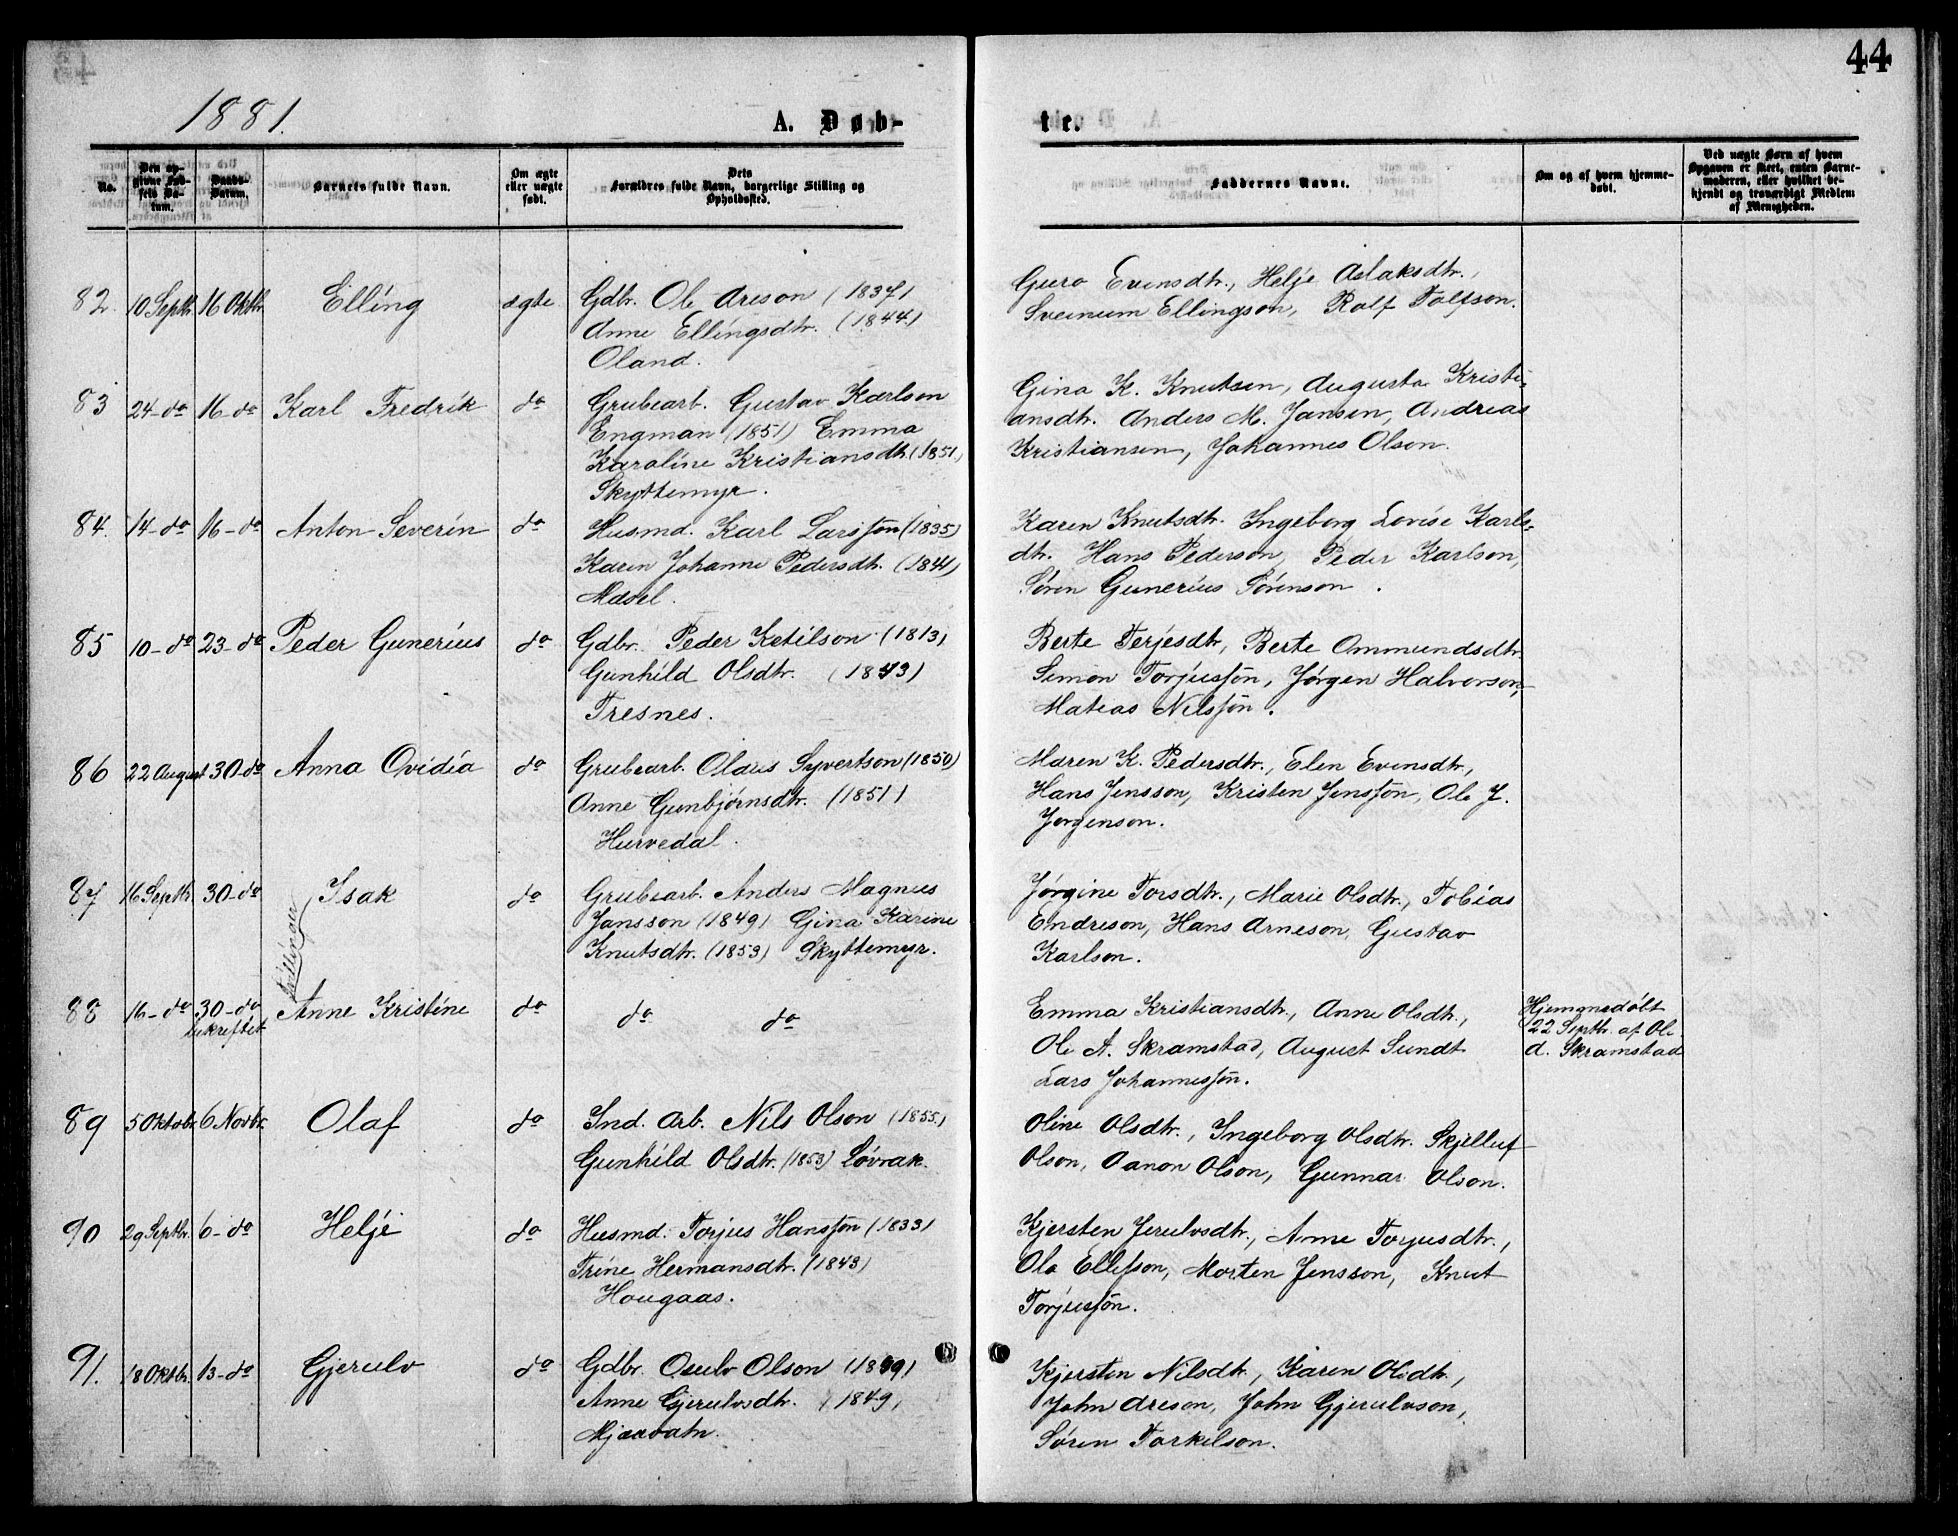 44
1881.
A. Døb-
te.
No.
Den opgivne Fødsels Datum.
Daabs-Datum.
Barnets fulde Navn.
Om ægte eller uægte født.
Dets Forældres fulde Navn, borgerlige Stilling og Opholdssted.
Faddernes Navne.
Om og af hvem hjemmedøbt.
Ved uægte Børn af hvem Opgaven er skeet, enten Barnemoderen, eller hvilket bekjendt og troværdigt Medlem af Menigheden.
82. 10 Septbr. 16 Oktbr. Elling ægte Gdbr. Ole Areson (1837)
Anne Ellingsdtr. (1844)
Oland.
Guro Evensdtr., Helje Aslaksdtr.,
Sveinum Ellingson, Rolf Tolfson.
83 24 - do 16 - do Karl Fredrik do Grubearb. Gustav Karlson
Engman (1851) Emma
Karoline Kristiansdtr. (1851)
Skyttemyr.
Gina K. Knutsen, Augusta Kristi-
ansdtr. Anders M. Jansen, Andreas
Kristiansen, Johannes Olson.
84. 14 - do 16 - do Anton Severin do Husmd. Karl Larsson (1835)
Karen Johanne Pedersdtr. (1841)
Mæsel.
Karen Knutsdtr. Ingeborg Lovise Karls-
dtr. Hans Pederson, Peder Karlson,
Søren Gunerius Sørenson.
85 10 - do 23 - do Peder Gunerius do Gdbr. Peder Ketilson (1813)
Gunhild Olsdtr. (1843)
Tresnes.
Berte Terjesdtr, Berte Ommundsdtr.
Simon Torjusson, Jørgen Halvorson,
Matias Nilsson.
86 22 August 30 - do Anna Ovidia do Grubearb. Olaus Syvertson (1850)
Anne Gunbjørnsdtr. (1851)
Hurvedal.
Maren K. Pedersdtr., Elen Evensdtr.,
Hans Jensson, Kristen Jensson, Ole J.
Jørgenson.
87 16 Septbr. 30 - do Isak do Grubearb. Anders Magnus
Jansson (1849) Gina Karine
Knutsdtr. (1853) Skyttemyr.
Tvillinger
Jørgine Torsdtr., Marie Olsdtr., Tobias
Endreson, Hans Arneson, Gustav
Karlson.
88 16 - do 30 - do bekreftet Anne Kristine do do do
Emma Kristiansdtr., Anne Olsdtr.,
Ole A. Skramstad, August Sundt
Lars Johannesson.
Hjemmedøbt
22 Septbr. af Ole
A. Skramstad
89 5 Oktobr. 6 Novbr. Olaf do Ind. Arb. Nils Olson (1855)
Gunhild Olsdtr. (1853) Løvrak.
Oline Olsdtr., Ingeborg Olsdtr. Skjelluf
Olson, Aanon Olson, Gunnar Olson.
90 29 Septbr. 6 - do Helje do Husmd. Torjus Hansson (1833)
Trine Hermansdtr. (1843)
Hougaas.
Kjersten Jerulvsdtr., Anne Torjusdtr.,
Ole Ellefson, Morten Jensson, Knut
Torjusson.
91. 18 Oktbr. 13 - do Gjerulv do Gdbr. Osulv Olson
Anne Gjerulvsdtr. (1849)
Mjaavatn.
Kjersten Nilsdtr., Karen Olsdtr.,
John Areson, John Gjerulvson,
Søren Torkelson.